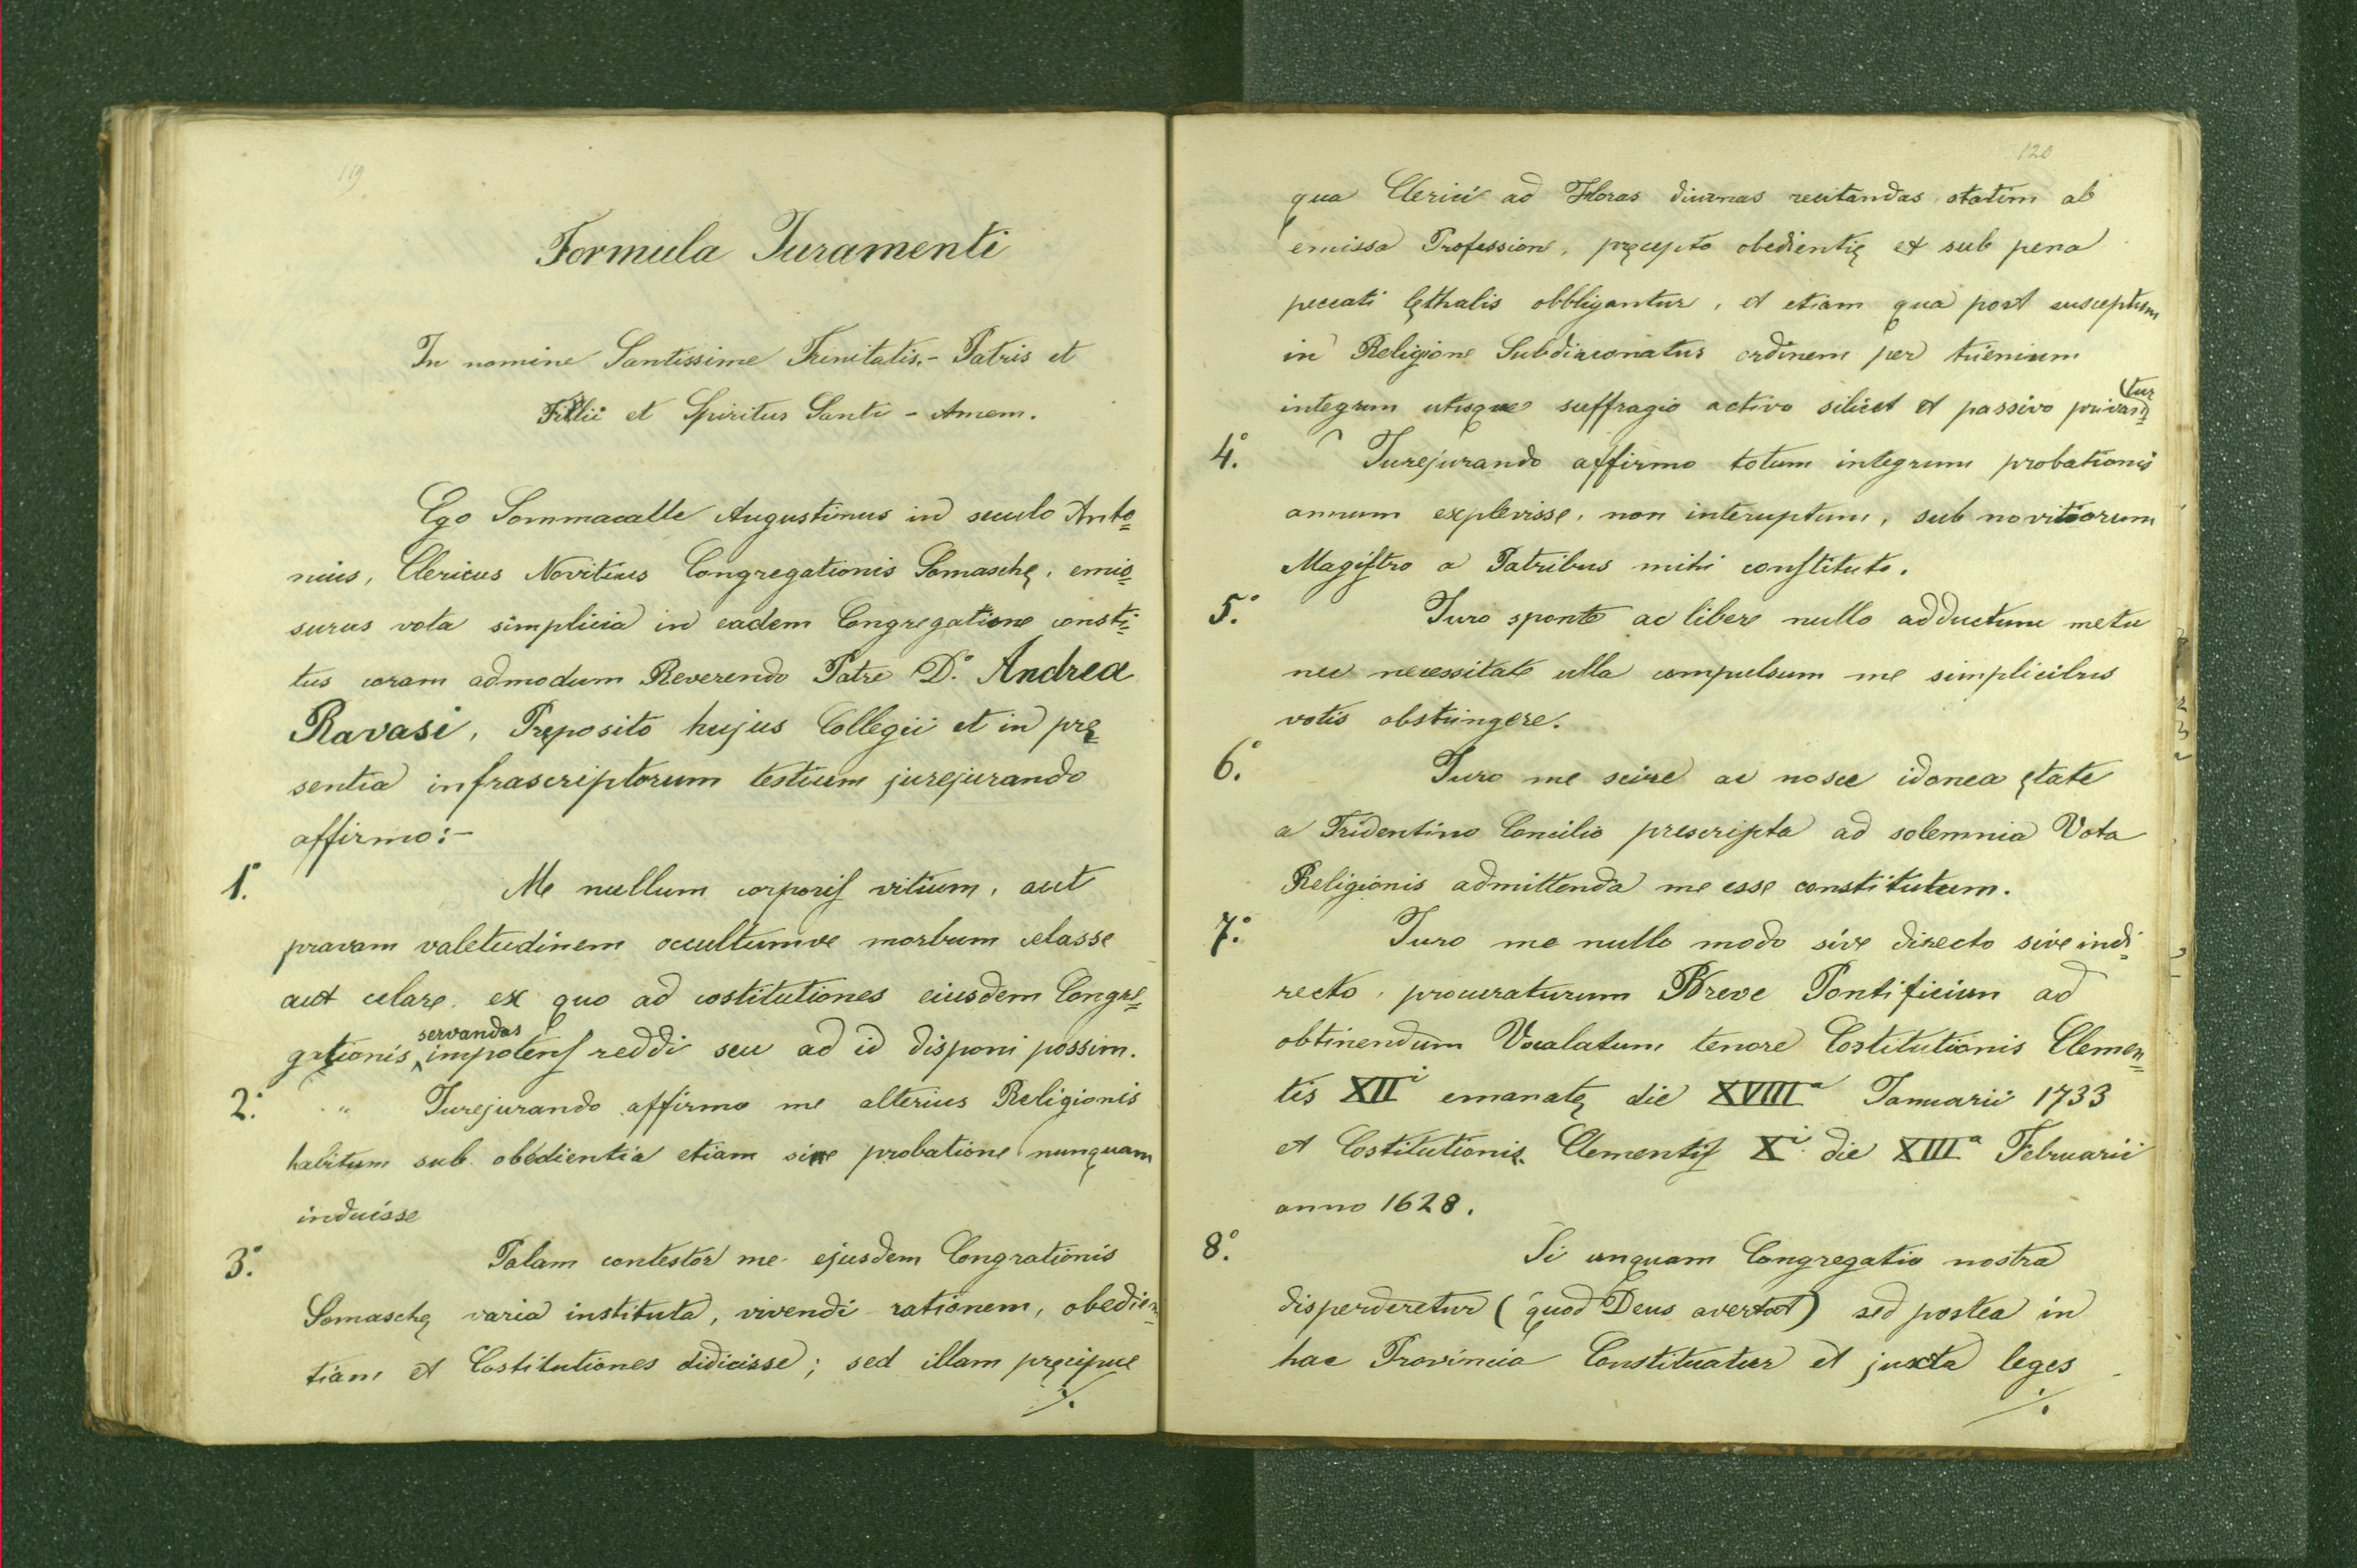 119
Formula Juramenti
In nomine Santissime Trinitatis.- Patris et
Filii et Spiritus Santi - Amem.
Ego Sommacalle Augustinus in seculo Anto=
nius, Clericus Novitius Congregationis Somaschę, emis=
surus vota simplicia in eadem Congregatione consti=
tus coram admodum Reverendo Patre D.º Andrea
Ravasi, Pręposito hujus Collegii et in prę=
sentia infrascriptorum testium jurejurando
affirmo:-
1.º Me nullum corporis vitium, aut
pravam valetudinem occultumve morbum celasse
aut celare, ex quo ad costitutiones eiusdem Congre=
gationis servandas impotens reddi seu ad id disponi possim.
2.º " Jurejurando affirmo me alterius Religionis
habitum sub obedientia etiam sine probatione nunquam
induisse
3.º Palam contestor me ejusdem Congrationis
Somaschę varia instituta, vivendi rationem, obedien=
tiam et Costitutiones didicisse; sed illam pręcipue
./.
120
qua Clerici ad Horas diurnas recitandas statim ab
emissa Professione, pręcepto obedientię et sub pena
peccati lęthalis obbligantur, et etiam qua post susceptum
in Religione Subdiaconatus ordinem per triennium
integrum utroque suffragio activo silicet et passivo privantur
4.º Jurejurando affirmo totum integrum probationis
annum explevisse, non interuptum, sub novitiorum
Magistro a Patribus mihi constituto.
5.º Juro sponte ac libere nullo adductum metu
nec necessitate ulla compulsum me simplicibus
votis obstringere.
6.º Juro me scire ac nosce idonea ętate
a Tridentino Concilio prescripta ad solemnia Vota
Religionis admittenda me esse constitutum.
7.º Juro me nullo modo sive directo sive indi=
recto, procuraturum Breve Pontificium ad
obtinendum Vocalatum tenore Costitutionis Clemen=
tis XIIⁱ emanatę die XVIIIª Januarii 1733
et Costitutionis Clementis Xⁱ. die XIIIª Februarii
anno 1628.
8.º Si unquam Congregatio nostra
disperderetur (quod Deus avertat) sed postea in
hac Provincia Constituatur et juxta leges
./.